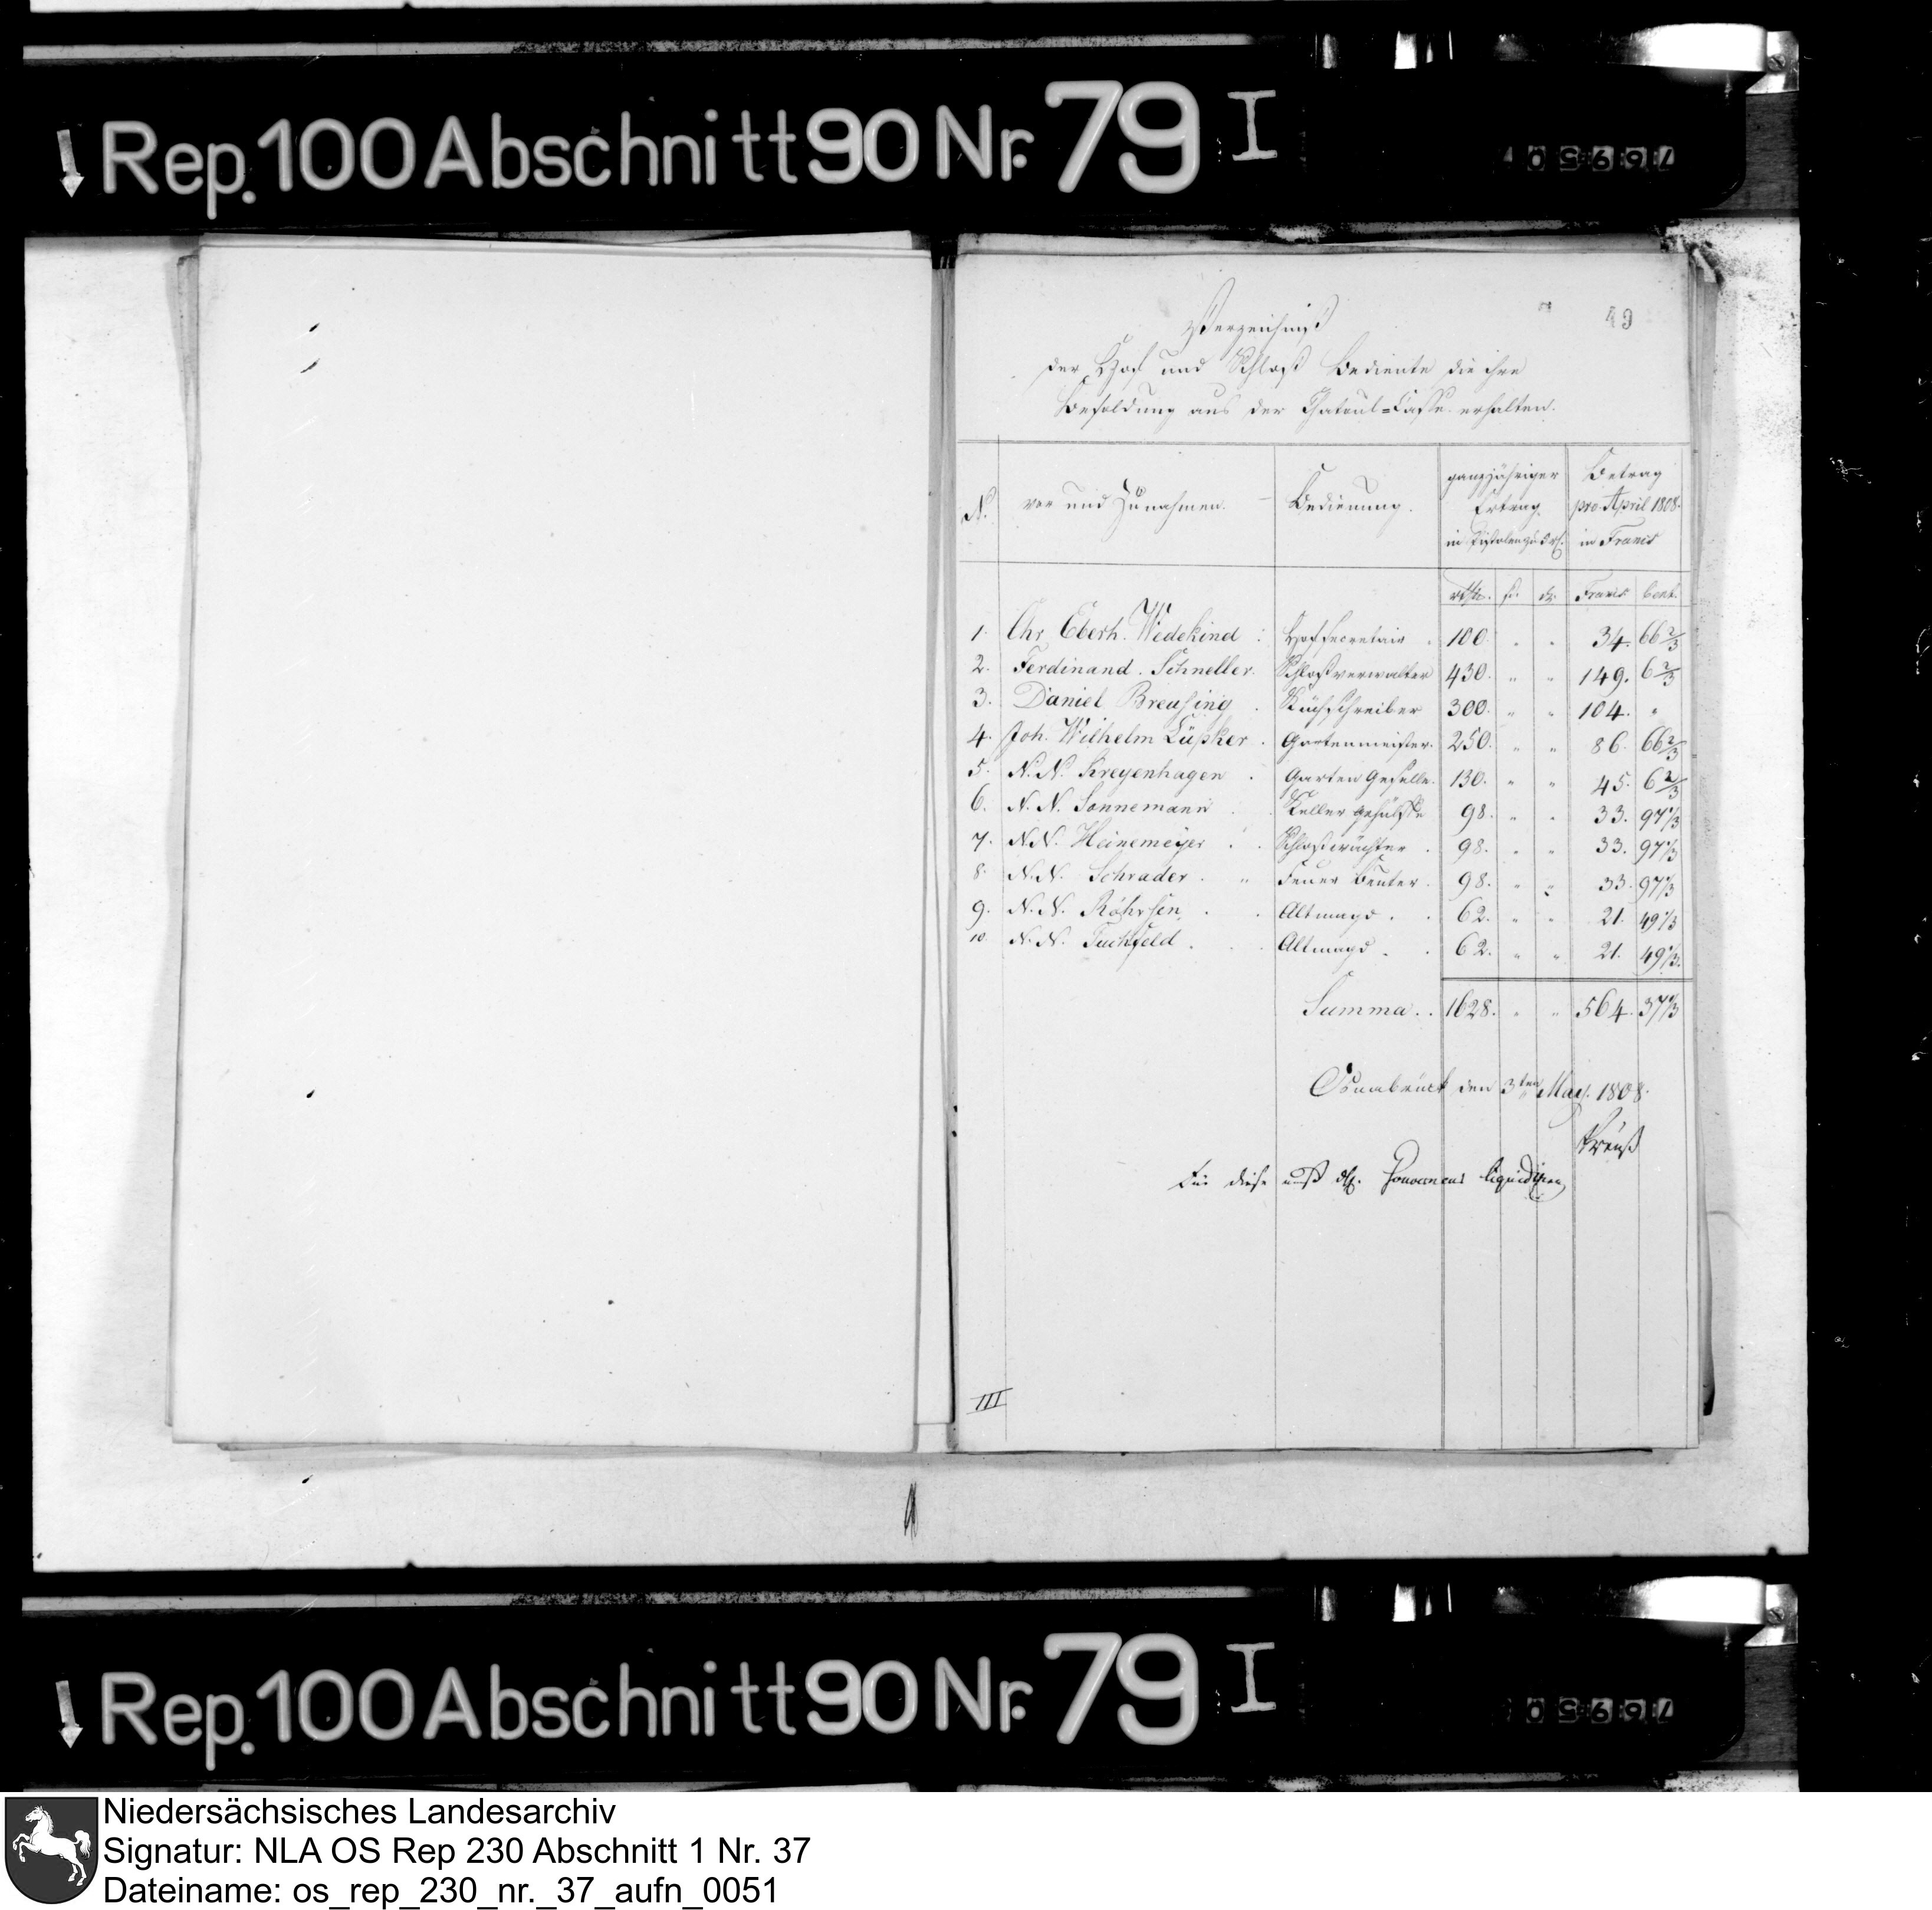 Rep. 100 Abschnitt 90 Nr. 79 I
49
Verzeichniß
der Hof und Schloß Bediente die ihre
Besoldung aus der Chatoul=Casse erhalten.
N. vor und Zunahmen. Bedienung. ganzjähriger Ertrag in Pistolen zu 5 rt. Betrag pro April 1808. in Francs
rthlr. ß. d. Francs Cent.
1. Chr. Eberh. Wedekind Hofsecretair 100. " " 34. 66 2/3
2. Ferdinand. Schneller. Schloßverwalter 430. " " 149. 6 2/3
3. Daniel Breusing Küchschreiber 300. " " 104. "
4. Joh. Wilhelm Lüpker. Gartenmeister. 250. " " 86. 66 2/3
5. N. N. Kreyenhagen Garten Geselle. 130. " " 45. 6 2/3
6. N. N. Sonnemann Keller Gehülffe 98. " " 33. 97 1/3
7. N. N. Heinemeyer Schloßwächter 98. " " 33. 97 1/3
8. N. N. Schrader Feuer Beuter. 98. " " 33. 97 1/3
9. N. N. Röhrsen Altmagd. 62. " " 21. 49 1/3
10. N. N. Tuchfeld. Altmagd. 62. " " 21. 49 1/3.
Summa.. 1628. " " 564. 37 1/3
Osnabrück den 3ten May. 1808.
Preuß
Für diese muß Gouverneur liquidiren
III
Rep. 100 Abschnitt 90 Nr. 79 I
Niedersächsisches Landesarchiv
Signatur: NLA OS Rep 230 Abschnitt 1 Nr. 37
Dateiname: os_rep_230_nr._37_aufn_0051